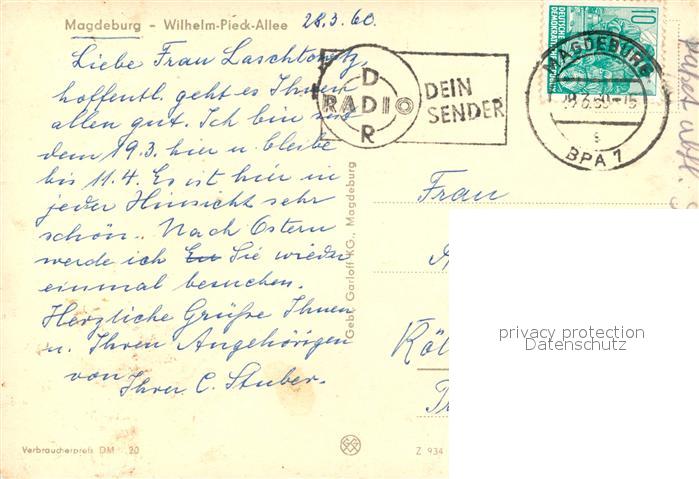 Magdeburg - Wilhelm-Pieck-Allee 28.3.60.
Liebe Frau Laschtowitz,
hoffentl. geht es Ihnen
allen gut. Ich bin seit
dem 19.3. hier u. bleibe
bis 11.4. Es ist hier in
jeder Hinsicht sehr
schön. Nach Ostern
werde ich Sie wieder
einmal besuchen.
Herzliche Grüße Ihnen
u. Ihren Angehörigen
von
Ihrer C. Stuber.
Verbraucherpreis DM 20
RADIO
DDR
DEIN
SENDER
10
DEUTSCHE
DEMOKRATISCHE
MAGDEBURG
BPA 7
s
Gebr. Garloff KG., Magdeburg
Frau
Köl
Z 934
privacy protection
Datenschutz